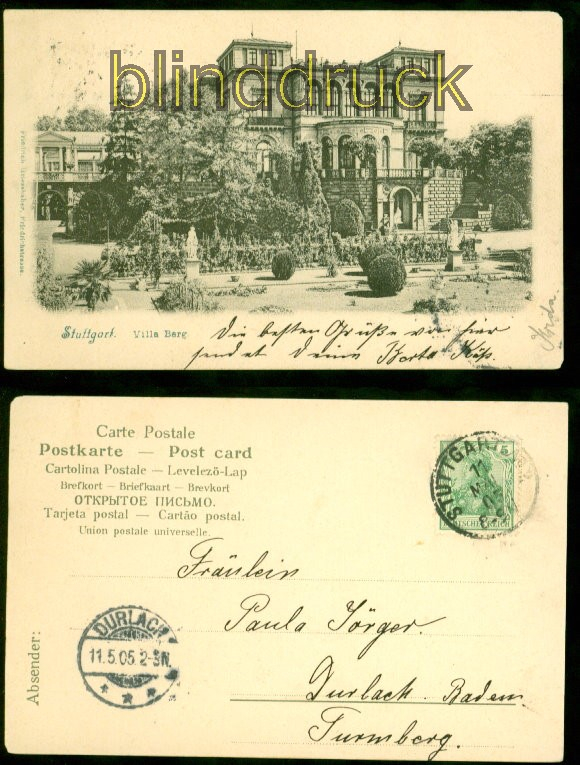 blinddruck
Stuttgart. Villa Berg
Die besten Grüße von hier
sendet Deine Berta
Carte Postale
Postkarte — Post card
Cartolina Postale — Levelező-Lap
Brefkort — Briefkaart — Brevkort
ОТКРЫТОЕ ПИСЬМО.
Tarjeta postal — Cartão postal.
Union postale universelle.
STUTTGART
DEUTSCHES REICH
5
Fräulein
Paula Jörger.
Durlach. Baden.
Turmberg.
DURLACH
11.5.05. 2-3N.
Absender: